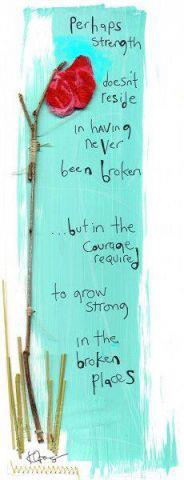 Perhaps
strength
doesn't
reside
in having
never
been broken
...but in the
courage
required
to grow
strong
in the
broken
places